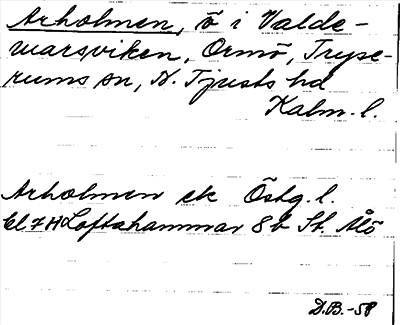 Arholmen, ö i Valde-
marsviken, Ormö, Tryse-
rums sn, N. Tjusts hd
Kalm. l.
Arholmen ek Östg. l.
Bl 7H Loftahammar 8b St. Ålö
D.B.-58